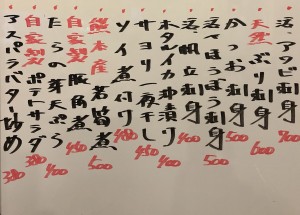 活、アワビ刺身 900
天然 ぶり刺身 600
今 かつお刺身 500
活、てほうぼう刺身 500
活、〆刺身 400
ホタルイカ沖漬り 400
サヨリ一夜干し 450
ソイ煮付り 480
熊本産 若筍煮 500
自家製 豚角煮 450
たらの芽天ぷら 400
自家製 ポテトサラダ 380
アスパラバター炒め 380